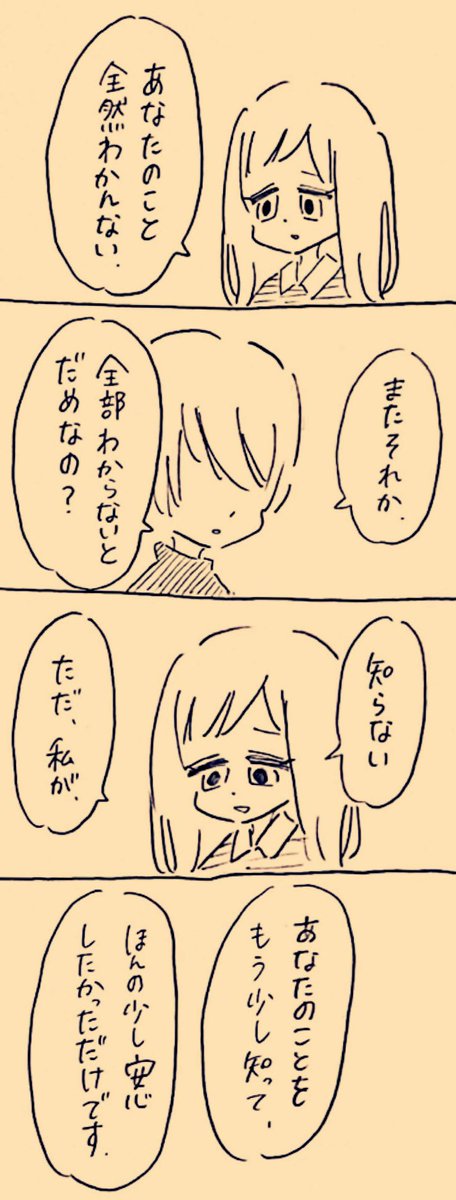 あなたのこと
全然わかんない.
またそれか.
全部わからないと
だめなの？
知らない
ただ、私が.
あなたのことを
もう少し知って.
ほんの少し安心
したかっただけです.